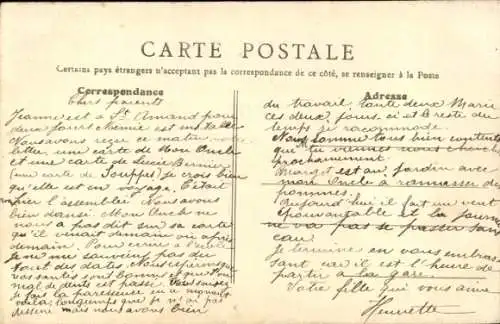 CARTE POSTALE
Certains pays étrangers n'acceptant pas la correspondance de ce côté, se renseigner à la Poste
Correspondance
Chers parents
Jeanne est à St Amand pour
deux jours
Nous avons reçu ce matin
lettre une carte de Mon Oncle
et une carte de Lucie Bernier
(une carte de Souppes) je crois bien
qu'elle est en voyage. C'était
hier l'assemblée Nous avons
bien dansé. Mon Oncle ne
nous a pas dit sur sa carte
qu'il venait demain ou après
demain. Pour écrire à
Je ne me souviens pas du
tout des dates. Nous espérons que
vos santés sont bonnes et que
mal de dents est passé. Vous
je fais la paresseuse en
voilà longtemps que je n'ai pas
dessiné mais nous avons bien
Adresse
du travail toute deux Marie
ces deux jours ci et le reste du
temps je raccommode.
Nous sommes tous bien contents
que tu viennes nous chercher
prochainement.
Margot est au jardin avec
mon Oncle à ramasser des
pommes.
Aujourd'hui il fait un vent
épouvantable et la journée
ne va pas se passer sans
eau.
Je termine en vous embras
sant car il est l'heure de
partir à la gare.
Votre fille qui vous aime
Henriette